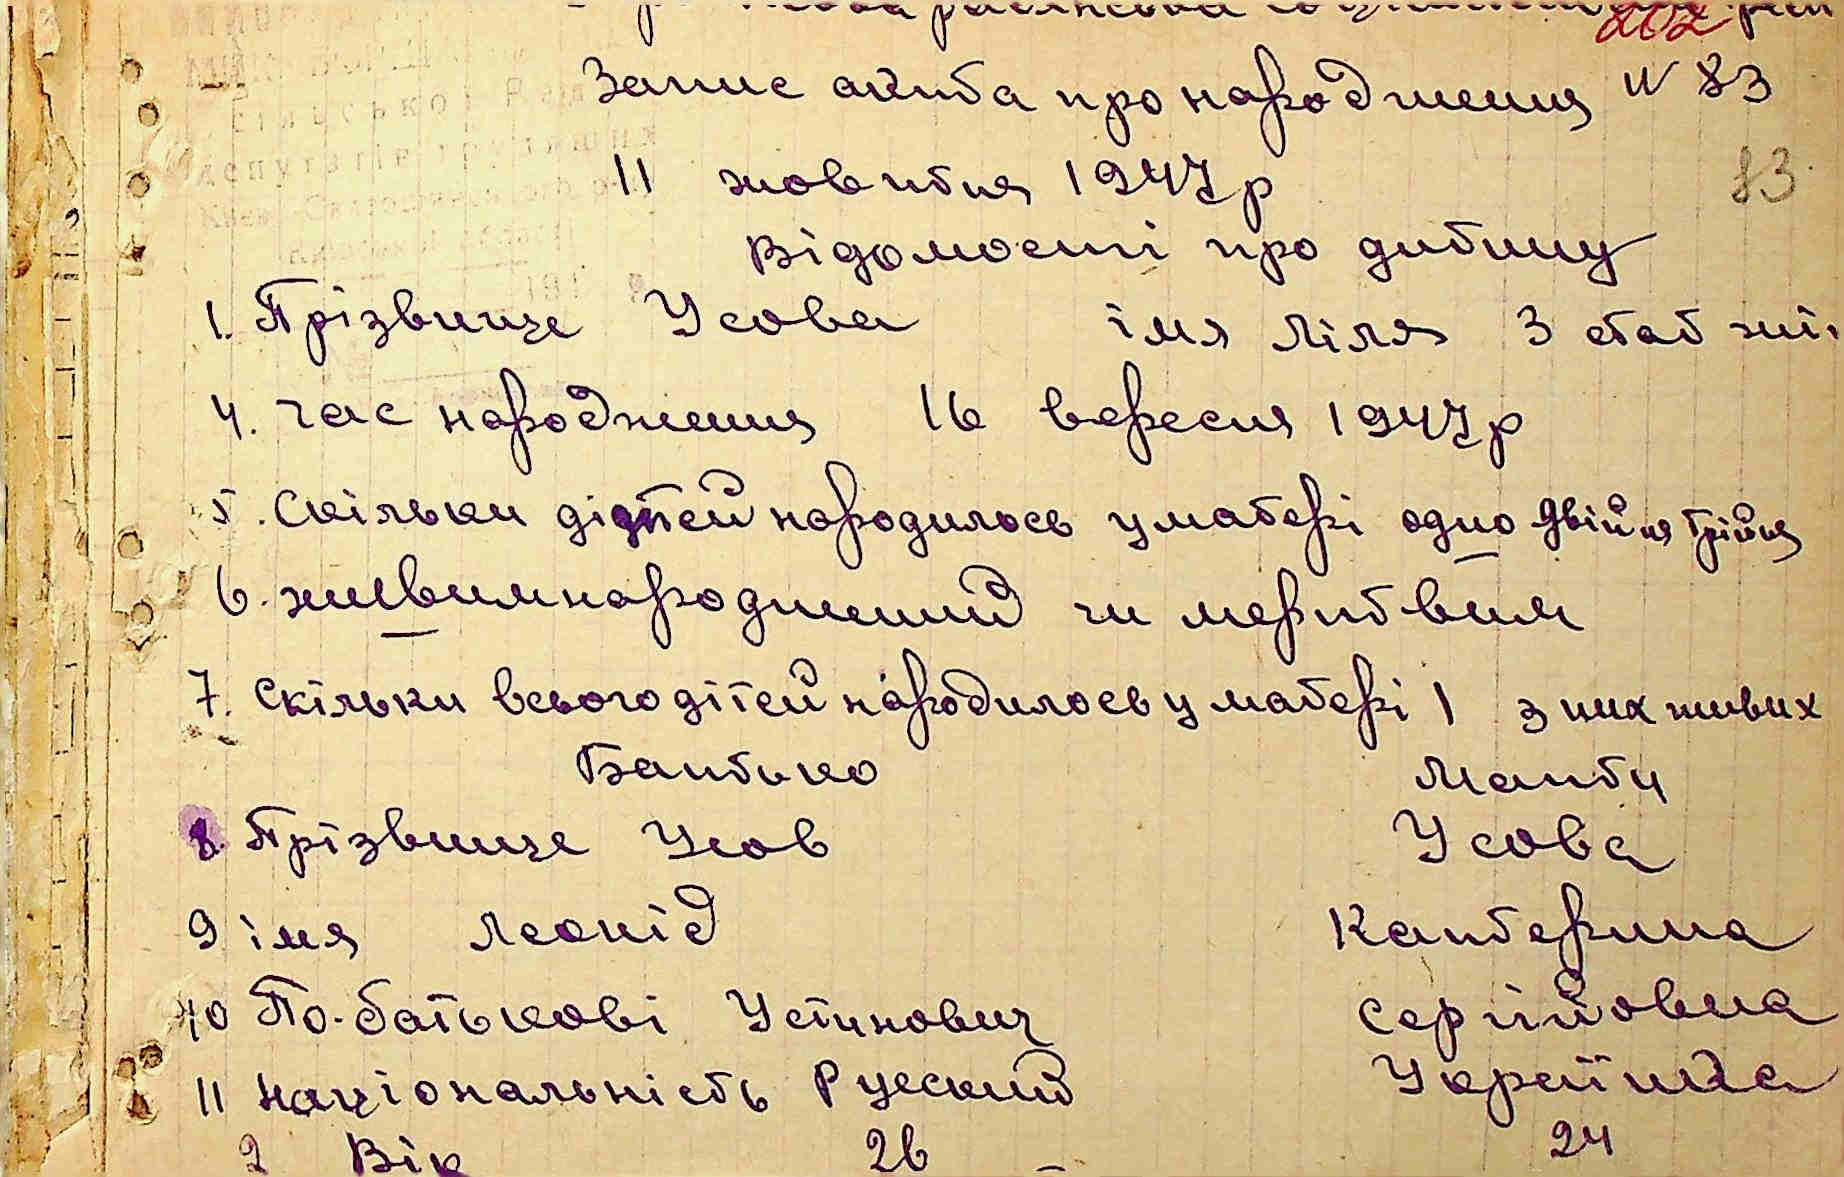 202
Запис акта про народження N 83
11 жовтня 1947р
83
Відомості про дитину
1. Прізвище Усова імя Ліля 3 стат жі
4. час народження 16 вересня 1947р
5. Скільки дітей народилось у матері одно двійня трійня
6. живимнароджений чи мертвим
7. Скільки всього дітей народилось у матері 1 з них живих
Батько Мати
8. Прізвище Усов Усова
9 імя Леонід Катерина
10 По-батькові Устинович Сергійовна
11 Національність Руський Українка
2 Вік 26 24